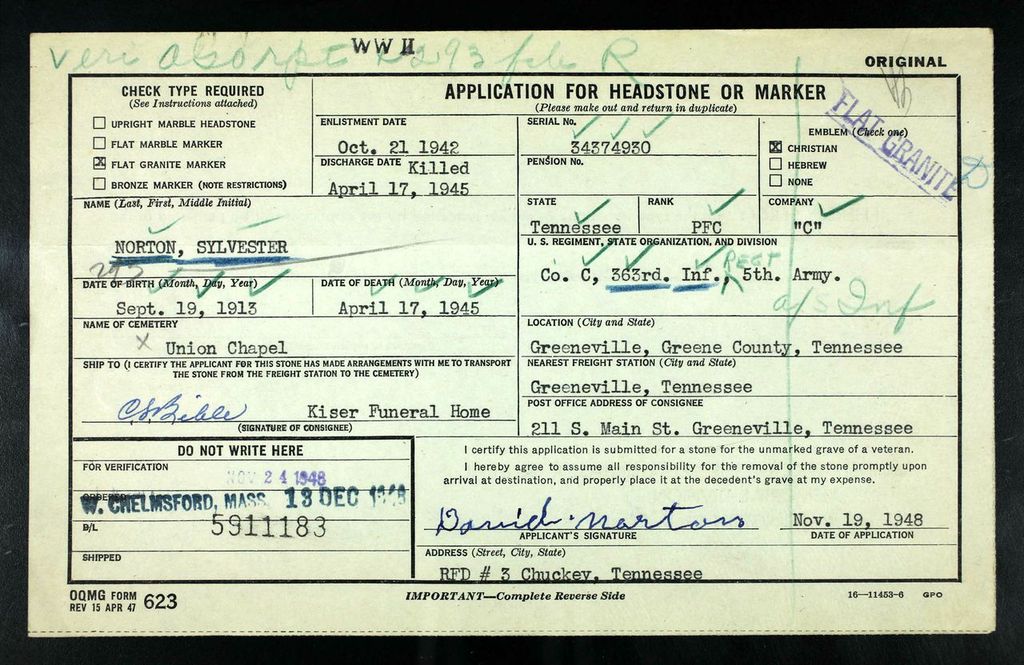 WW II
Veri
R
ORIGINAL
CHECK TYPE REQUIRED
(See Instructions attached)
☐ UPRIGHT MARBLE HEADSTONE
☐ FLAT MARBLE MARKER
☒ FLAT GRANITE MARKER
☐ BRONZE MARKER (NOTE RESTRICTIONS)
APPLICATION FOR HEADSTONE OR MARKER
(Please make out and return in duplicate)
ENLISTMENT DATE
Oct. 21 1942
DISCHARGE DATE Killed
April 17, 1945
SERIAL No.
34374930
PENSION No.
EMBLEM (Check one)
☒ CHRISTIAN
☐ HEBREW
☐ NONE
FLAT GRANITE
NAME (Last, First, Middle Initial)
NORTON, SYLVESTER
STATE
Tennessee
RANK
PFC
COMPANY
"C"
U. S. REGIMENT, STATE ORGANIZATION, AND DIVISION
Co. C, 363rd. Inf., REGT 5th. Army.
Inf
DATE OF BIRTH (Month, Day, Year)
Sept. 19, 1913
DATE OF DEATH (Month, Day, Year)
April 17, 1945
NAME OF CEMETERY
X Union Chapel
LOCATION (City and State)
Greeneville, Greene County, Tennessee
SHIP TO (I CERTIFY THE APPLICANT FOR THIS STONE HAS MADE ARRANGEMENTS WITH ME TO TRANSPORT
THE STONE FROM THE FREIGHT STATION TO THE CEMETERY)
C.S. Bible Kiser Funeral Home
(SIGNATURE OF CONSIGNEE)
NEAREST FREIGHT STATION (City and State)
Greeneville, Tennessee
POST OFFICE ADDRESS OF CONSIGNEE
211 S. Main St. Greeneville, Tennessee
DO NOT WRITE HERE
FOR VERIFICATION
NOV 24 1948
ORDERED
W. CHELMSFORD, MASS. 13 DEC 1948
B/L
5911183
SHIPPED
I certify this application is submitted for a stone for the unmarked grave of a veteran.
I hereby agree to assume all responsibility for the removal of the stone promptly upon
arrival at destination, and properly place it at the decedent's grave at my expense.
David Norton
APPLICANT'S SIGNATURE
Nov. 19, 1948
DATE OF APPLICATION
ADDRESS (Street, City, State)
RFD # 3 Chuckey, Tennessee
OQMG FORM
REV 15 APR 47 623
IMPORTANT—Complete Reverse Side
16—11453-6 GPO